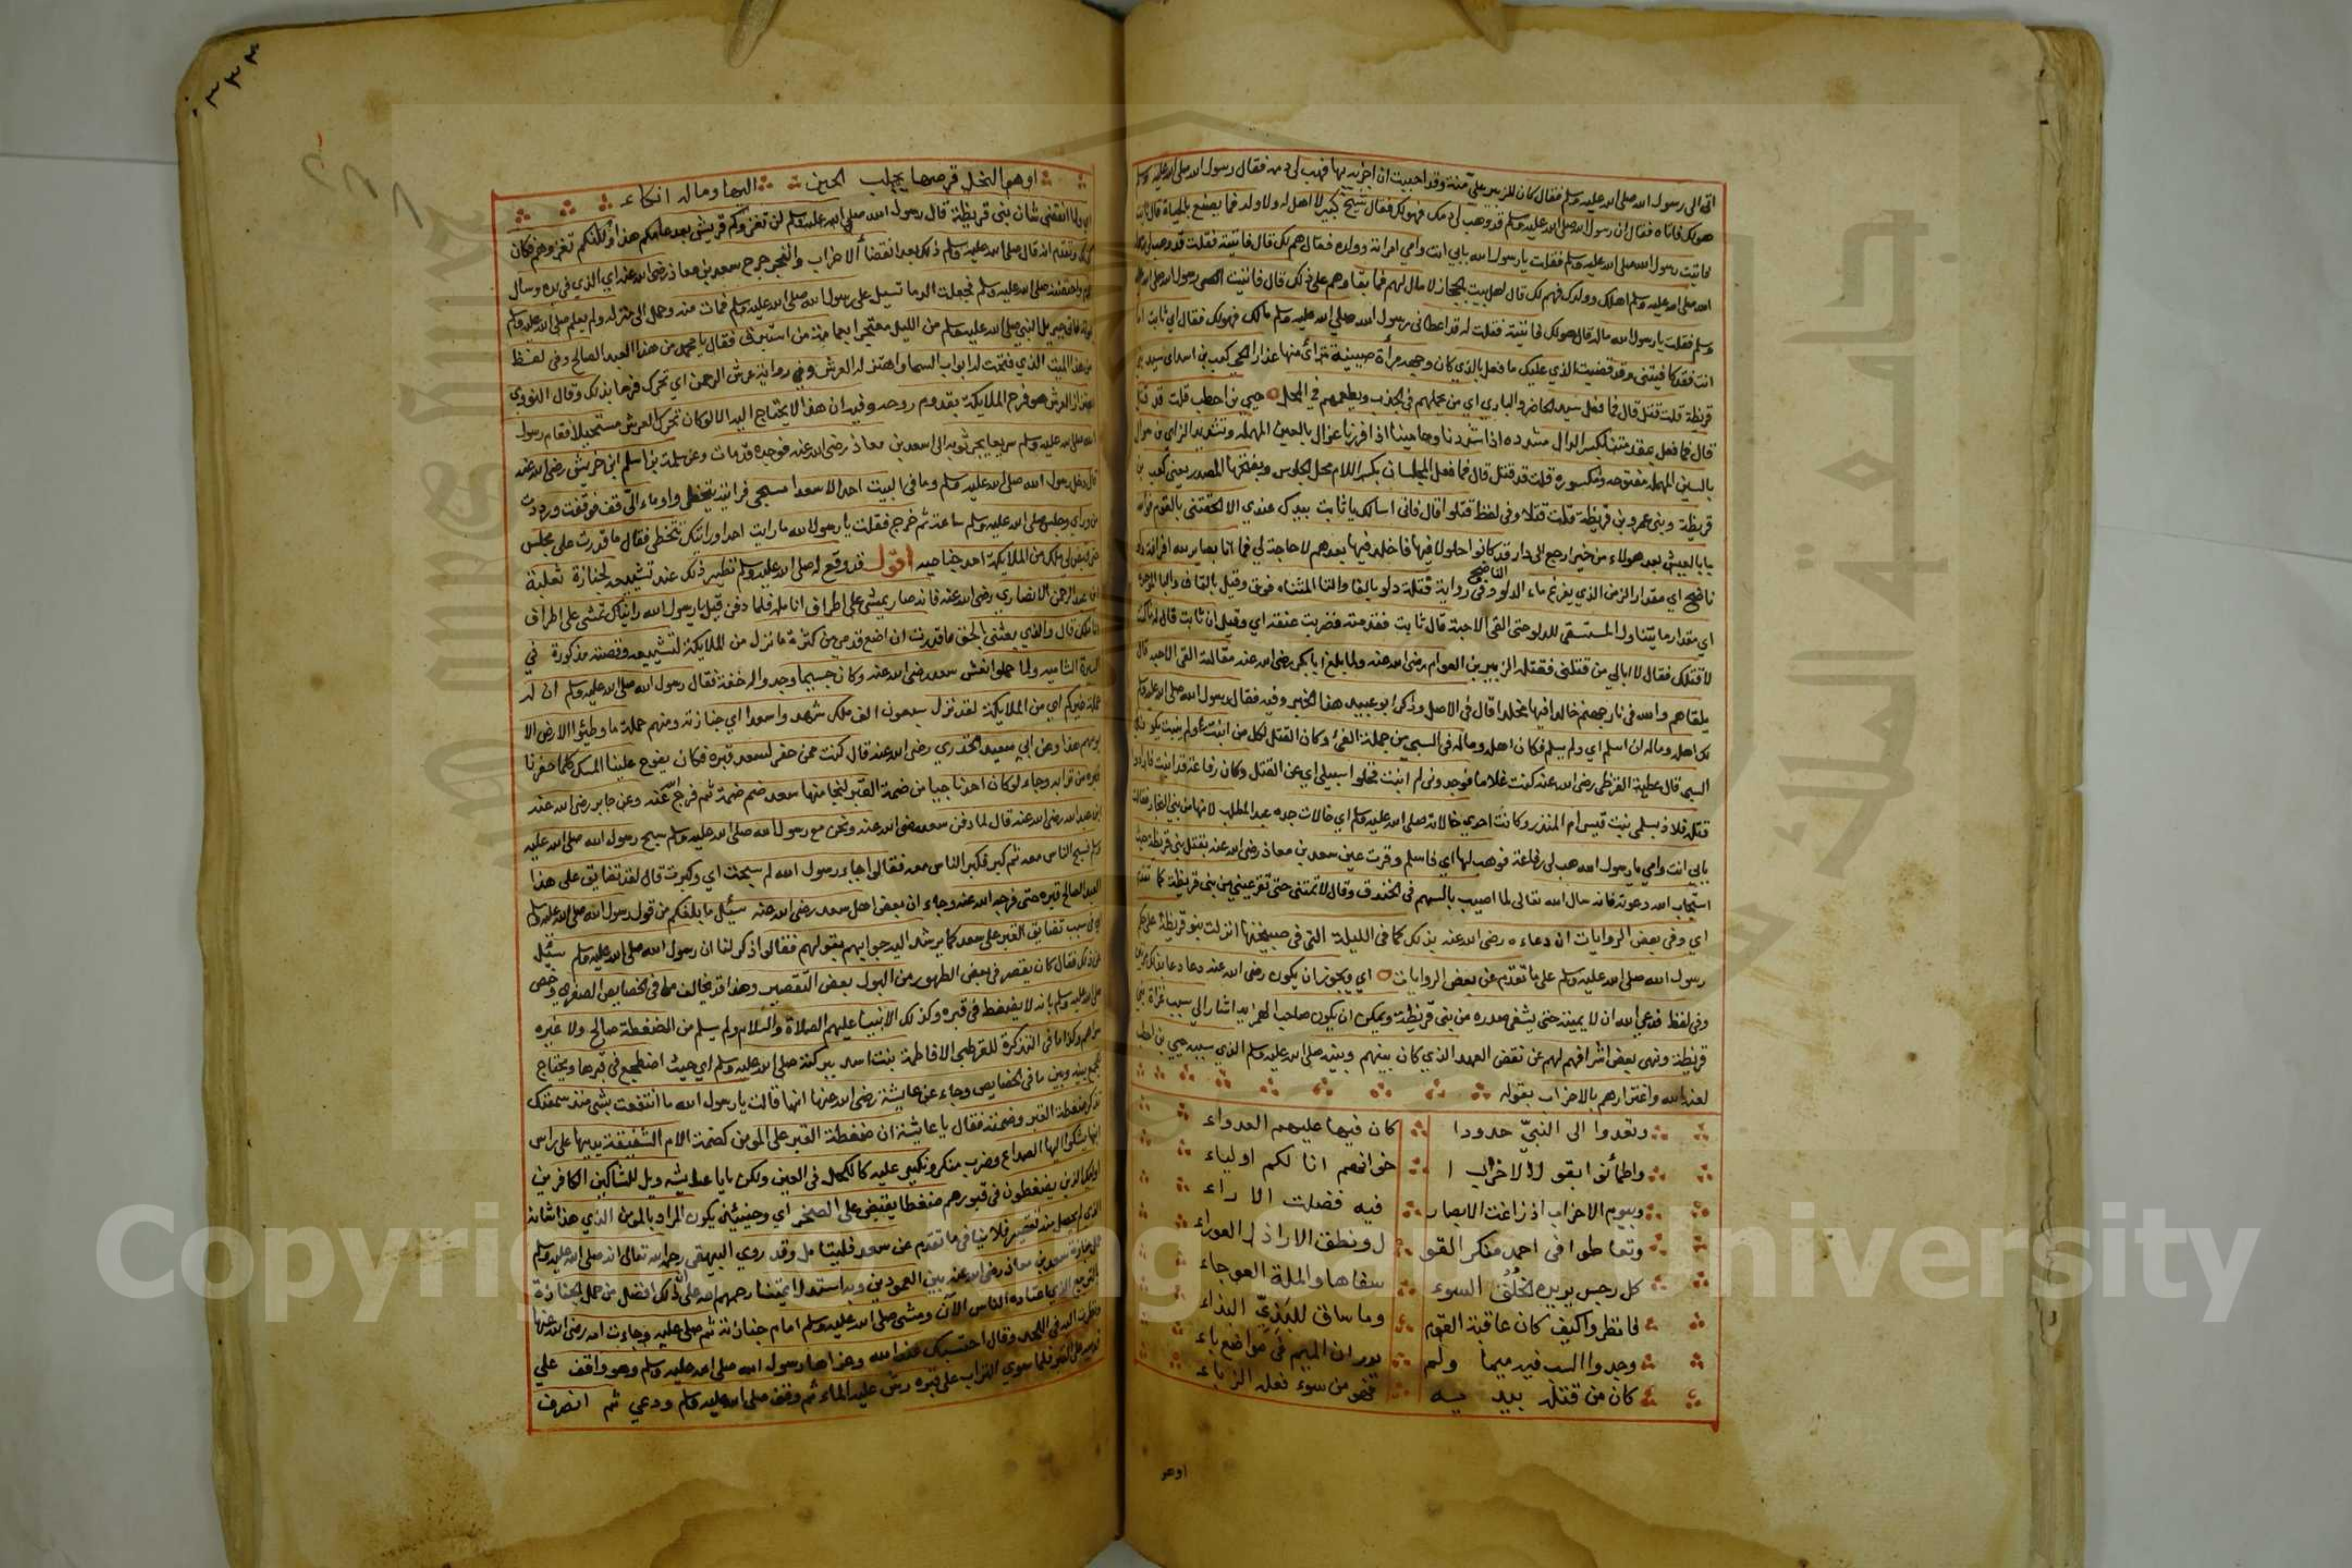 اتى الى رسول الله صلى الله عليه وسلم فقال كان للزبير علي منة وقد احببت ان اجزيه بها فهب لي دمه فقال رسول الله صلى الله عليه وسلم
هو لك فاتاه فقال ان رسول الله صلى الله عليه وسلم قد وهب لي دمك فهو لك فقال شيخ كبير لا اهل له ولا ولد فما يصنع بالحياة قال ثابت
فاتيت رسول الله صلى الله عليه وسلم فقلت يا رسول الله بابي انت وامي امراته وولده فقال هم لك قال فاتيته فقلت قد وهب لي رسول
الله صلى الله عليه وسلم اهلك وولدك فهم لك قال اهل بيت بالحجاز لا مال لهم فما بقاوهم على ذلك قال فاتيت رسول الله صلى الله عليه
وسلم فقلت يا رسول الله ماله قال هو لك فاتيته فقلت له قد اعطاني رسول الله صلى الله عليه وسلم مالك فهو لك فقال اي ثابت اما
انت فقد كافيتني وقد قضيت الذي عليك ما فعل بالذي كان وجهه مرأة صينية تتراأى منها عذارا الحي كعب بن اسد اي سيد بني
قريظة قلت قتل قال فما فعل سيد الحاضر والبادي اي من يحملهم في الجدب ويطعمهم في المحل حيي بن اخطب قلت قد قتل
قال فما فعل مقدمتنا بكسر الدال مشدده اذا شددنا وحاميتنا اذا فررنا عزال بالعين المهمله وتشديد الزاي بن سموال
بالسين المهمله مفتوحه ومكسوره قلت قد قتل قال فما فعل المجلسان بكسر اللام محل الجلوس وبفتحها المصدر يعني كعب بن
قريظة وبني عمرو بن قريظة قلت قتلا وفي لفظ قتلوا قال فاني اسالك يا ثابت بيدك عندي الا الحقتني بالقوم فوالله
ما بالعيش بعد هولاء من خير ارجع الى دار قد كانوا حلولا فيها فاخلد فيها بعدهم لا حاجة لي فما انا بصابر لله افراغة دلو
ناضح اي مقدار الزمن الذي يفرغ ماء الدلو وفي رواية فتلة دلو بالفا والتا المثناه فوق وقيل بالقاف والبا الموحدة
الناضح
اي مقدار ما يتناول المستسقي للدلو حتى القى الاحبة قال ثابت فقدمته فضربت عنقه اي وقيل ان ثابت قال له ما كنت
لاقتلك فقال لا ابالي من قتلني فقتله الزبير بن العوام رضي الله عنه ولما بلغ ابا بكر رضي الله عنه مقالته القى الاحبه قال
يلقاهم والله في نار جهنم خالدا فيها مخلدا قال في الاصل وذكر ابو عبيد هذا الخبر وفيه فقال رسول الله صلى الله عليه وسلم
لك اهله وماله ان اسلم اي ولم يسلم فكان اهله وماله في السبي من جملة الفئ وكان القتل لكل من انبت ولم ينبت يكون في
السبي قال عطية القرظي رضي الله عنه كنت غلاما فوجدوني لم انبت فخلوا سبيلي اي عن القتل وكان رفاعة قد انبت فارادوا
قتله فلاذ بسلمى بنت قيس ام المنذر وكانت احدى خالاته صلى الله عليه وسلم اي خالات جده عبد المطلب لانها من بني النجار فقالت
بابي انت وامي يا رسول الله هب لي رفاعة فوهبه لها اي فاسلم وقرت عين سعد بن معاذ رضي الله عنه بقتل بني قريظة حيث
استجاب الله دعوته فانه سال الله تعالى لما اصيب بالسهم في الخندق وقال لا تمتني حتى تقر عيني من بني قريظة كما تقدم
اي وفي بعض الروايات ان دعاءه رضي الله عنه بذلك كما في الليلة التي في صبيحتها انزلت بنو قريظة على حكم
رسول الله صلى الله عليه وسلم على ما تقدم عن بعض الروايات اي ويجوز ان يكون رضي الله عنه دعا دعا بذلك مرتين
وفي لفظ فدعي الله ان لا يميته حتى يشفي صدره من بني قريظة ويمكن ان يكون صاحب الهمزيه اشار الى سبب غزاة بني
قريظة ونهي بعض اشرافهم لهم عن نقض العهد الذي كان بينهم وبينه صلى الله عليه وسلم الذي سببه حيي بن اخطب
لعنه الله واغترارهم بالاحزاب بقوله
وتعدوا الى النبيّ حدودا كان فيها عليهم العدواء
واطمأنوا بقول الاحزاب ا خوانهم انا لكم اولياء
وبيوم الاحزاب اذ زاغت الابصار فيه وضلت الاراء
وتعاطوا في احمد منكر القو ل ونطق الاراذل العوراء
كل رجس يزيده الخُلُق السوء سفاها والملة العوجاء
فانظروا كيف كان عاقبة القوم وما ساق للبَذيّ البذاء
وجدوا السب فيه سما ولم يدر ان الميم في مواضع باء
كان من قتله بيديه فهو من سوء فعله الزباء
اوهو
٣٣٤
او هو النحل قرصها يجلب الحين اليها وماله انكاء
اي ولما انقضى شان بني قريظة قال رسول الله صلى الله عليه وسلم لن تغزوكم قريش بعد عامكم هذا ولكنكم تغزونهم فكان
كذلك وتقدم انه قال صلى الله عليه وسلم ذلك بعد انقضاء الاحزاب وانفجر جرح سعد بن معاذ رضي الله عنه اي الذي في يده وسال
الدم واحتضنه صلى الله عليه وسلم فجعلت الدما تسيل على رسول الله صلى الله عليه وسلم فمات منه وحمل الى منزله ولم يعلم صلى الله عليه وسلم
بموته فاتى جبريل النبي صلى الله عليه وسلم من الليل معتجرا بعمامة من استبرق فقال يا محمد من هذا العبد الصالح وفي لفظ
من هذا الميت الذي فتحت له ابواب السما واهتز له العرش وفي رواية عرش الرحمن اي تحرك فرحا بذلك وقال النووي
اهتزاز العرش هو فرح الملايكة بقدوم روحه وفيه ان هذا لا يحتاج اليه الا لو كان تحرك العرش مستحيلا فقام رسول
الله صلى الله عليه وسلم سريعا يجر ثوبه الى سعد بن معاذ رضي الله عنه فوجده قد مات وعن سلمة بن اسلم ابن حريش رضي الله عنه
قال دخل رسول الله صلى الله عليه وسلم وما في البيت احد الا سعدا مسجى فرايته يتخطى واوماء اليّ قف فوقفت ورددت
من وراي وجلس صلى الله عليه وسلم ساعة ثم خرج فقلت يا رسول الله ما رايت احدا ورايتك تتخطى فقال ما قدرت على مجلس
حتى قبض لي ملك من الملايكة احد جناحيه اقول قد وقع له صلى الله عليه وسلم نظير ذلك عند تشييعه لجنازة ثعلبة
ابن عبد الرحمن الانصاري رضي الله عنه فانه صار يمشي على اطراف انامله فلما دفن قيل يا رسول الله رايناك تمشي على اطراف
اناملك قال والذي بعثني بالحق ما قدرت ان اضع قدمي من كثرة ما نزل من الملايكة لتشييعه وقصته مذكورة في
السيرة الشاميه ولما حملوا نعش سعد رضي الله عنه وكان جسيما وجدوا له خفة فقال رسول الله صلى الله عليه وسلم ان له
حملة غيركم اي من الملايكة لقد نزل سبعون الف ملك شهدوا سعدا اي جنازته ومنهم حملة ما وطئوا الارض الا
يومهم هذا وعن ابي سعيد الخدري رضي الله عنه قال كنت ممن حفر لسعد قبره فكان يفوح علينا المسك كلما حفرنا
قبره من ترابه وجاء لو كان احد ناجيا من ضمة القبر لنجا منها سعد ضم ضمة ثم فرج عنه وعن جابر رضي الله عنه
ابن عبد الله رضي الله عنه قال لما دفن سعد رضي الله عنه ونحن مع رسول الله صلى الله عليه وسلم سبح رسول الله صلى الله عليه
وسلم فسبح الناس معه ثم كبر فكبر الناس معه فقالوا يا رسول الله لم سبحت اي وكبرت قال لقد تضايق على هذا
العبد الصالح قبره حتى فرجه الله عنه وجاء ان بعض اهل سعد رضي الله عنه سئل ما بلغكم من قول رسول الله صلى الله عليه وسلم
اي في سبب تضايق القبر على سعد كما يرشد اليه جوابهم بقولهم فقالوا ذكر لنا ان رسول الله صلى الله عليه وسلم سئل
عن ذلك فقال كان يقصر في بعض الطهور من البول بعض التقصير وهذا قد يخالف ما في الخصايص الصغرى وخص
صلى الله عليه وسلم بانه لا يضغط في قبره وكذلك الانبيا عليهم الصلاة والسلام ولم يسلم من الضغطة صالح ولا غيره
سواهم وكذا ما في التذكرة للقرطبي الا فاطمة بنت اسد ببركته صلى الله عليه وسلم اي حيث اضطجع في قبرها ويحتاج
للجمع بينه وبين ما في الخصايص وجاء عن عايشة رضي الله عنها انها قالت يا رسول الله ما انتفعت بشي منذ سمعتك
تذكر ضغطة القبر وضمته فقال يا عايشة ان ضغطة القبر على المومن كضمة الام الشفيقة يديها على راس
ابنها يشكو اليها الصداع وضرب منكر ونكير عليه كالكحل في العين ولكن يا عايشه ويل للشاكين الكافرين
اولئك الذين يضغطون في قبورهم ضغطا يقبض على الصخر اي وحينئذ يكون المراد بالمومن الذي هذا شانه
الذي لم يحصل منه تقصير فلا ينافي ما تقدم عن سعد فليتامل وقد روى البيهقي رحمه الله تعالى انه صلى الله عليه وسلم
حمل جنازة سعد بن معاذ رضي الله عنه بين العمودين وبه استدل ايمتنا رحمهم الله على ان ذلك افضل من حمل الجنازة
بالتربيع الذي اعتاده الناس الآن ومشى صلى الله عليه وسلم امام جنازته ثم صلى عليه وجاءت امه رضي الله عنها
ونظرت اليه في اللحد وقالت احتسبك عند الله وعزاها رسول الله صلى الله عليه وسلم وهو واقف على
قدميه على القبر فلما سوي التراب على قبره رش عليه الماء ثم وقف صلى الله عليه وسلم ودعي ثم انصرف
جامعة الملك سعود
King Saud University
Copyright © King Saud University